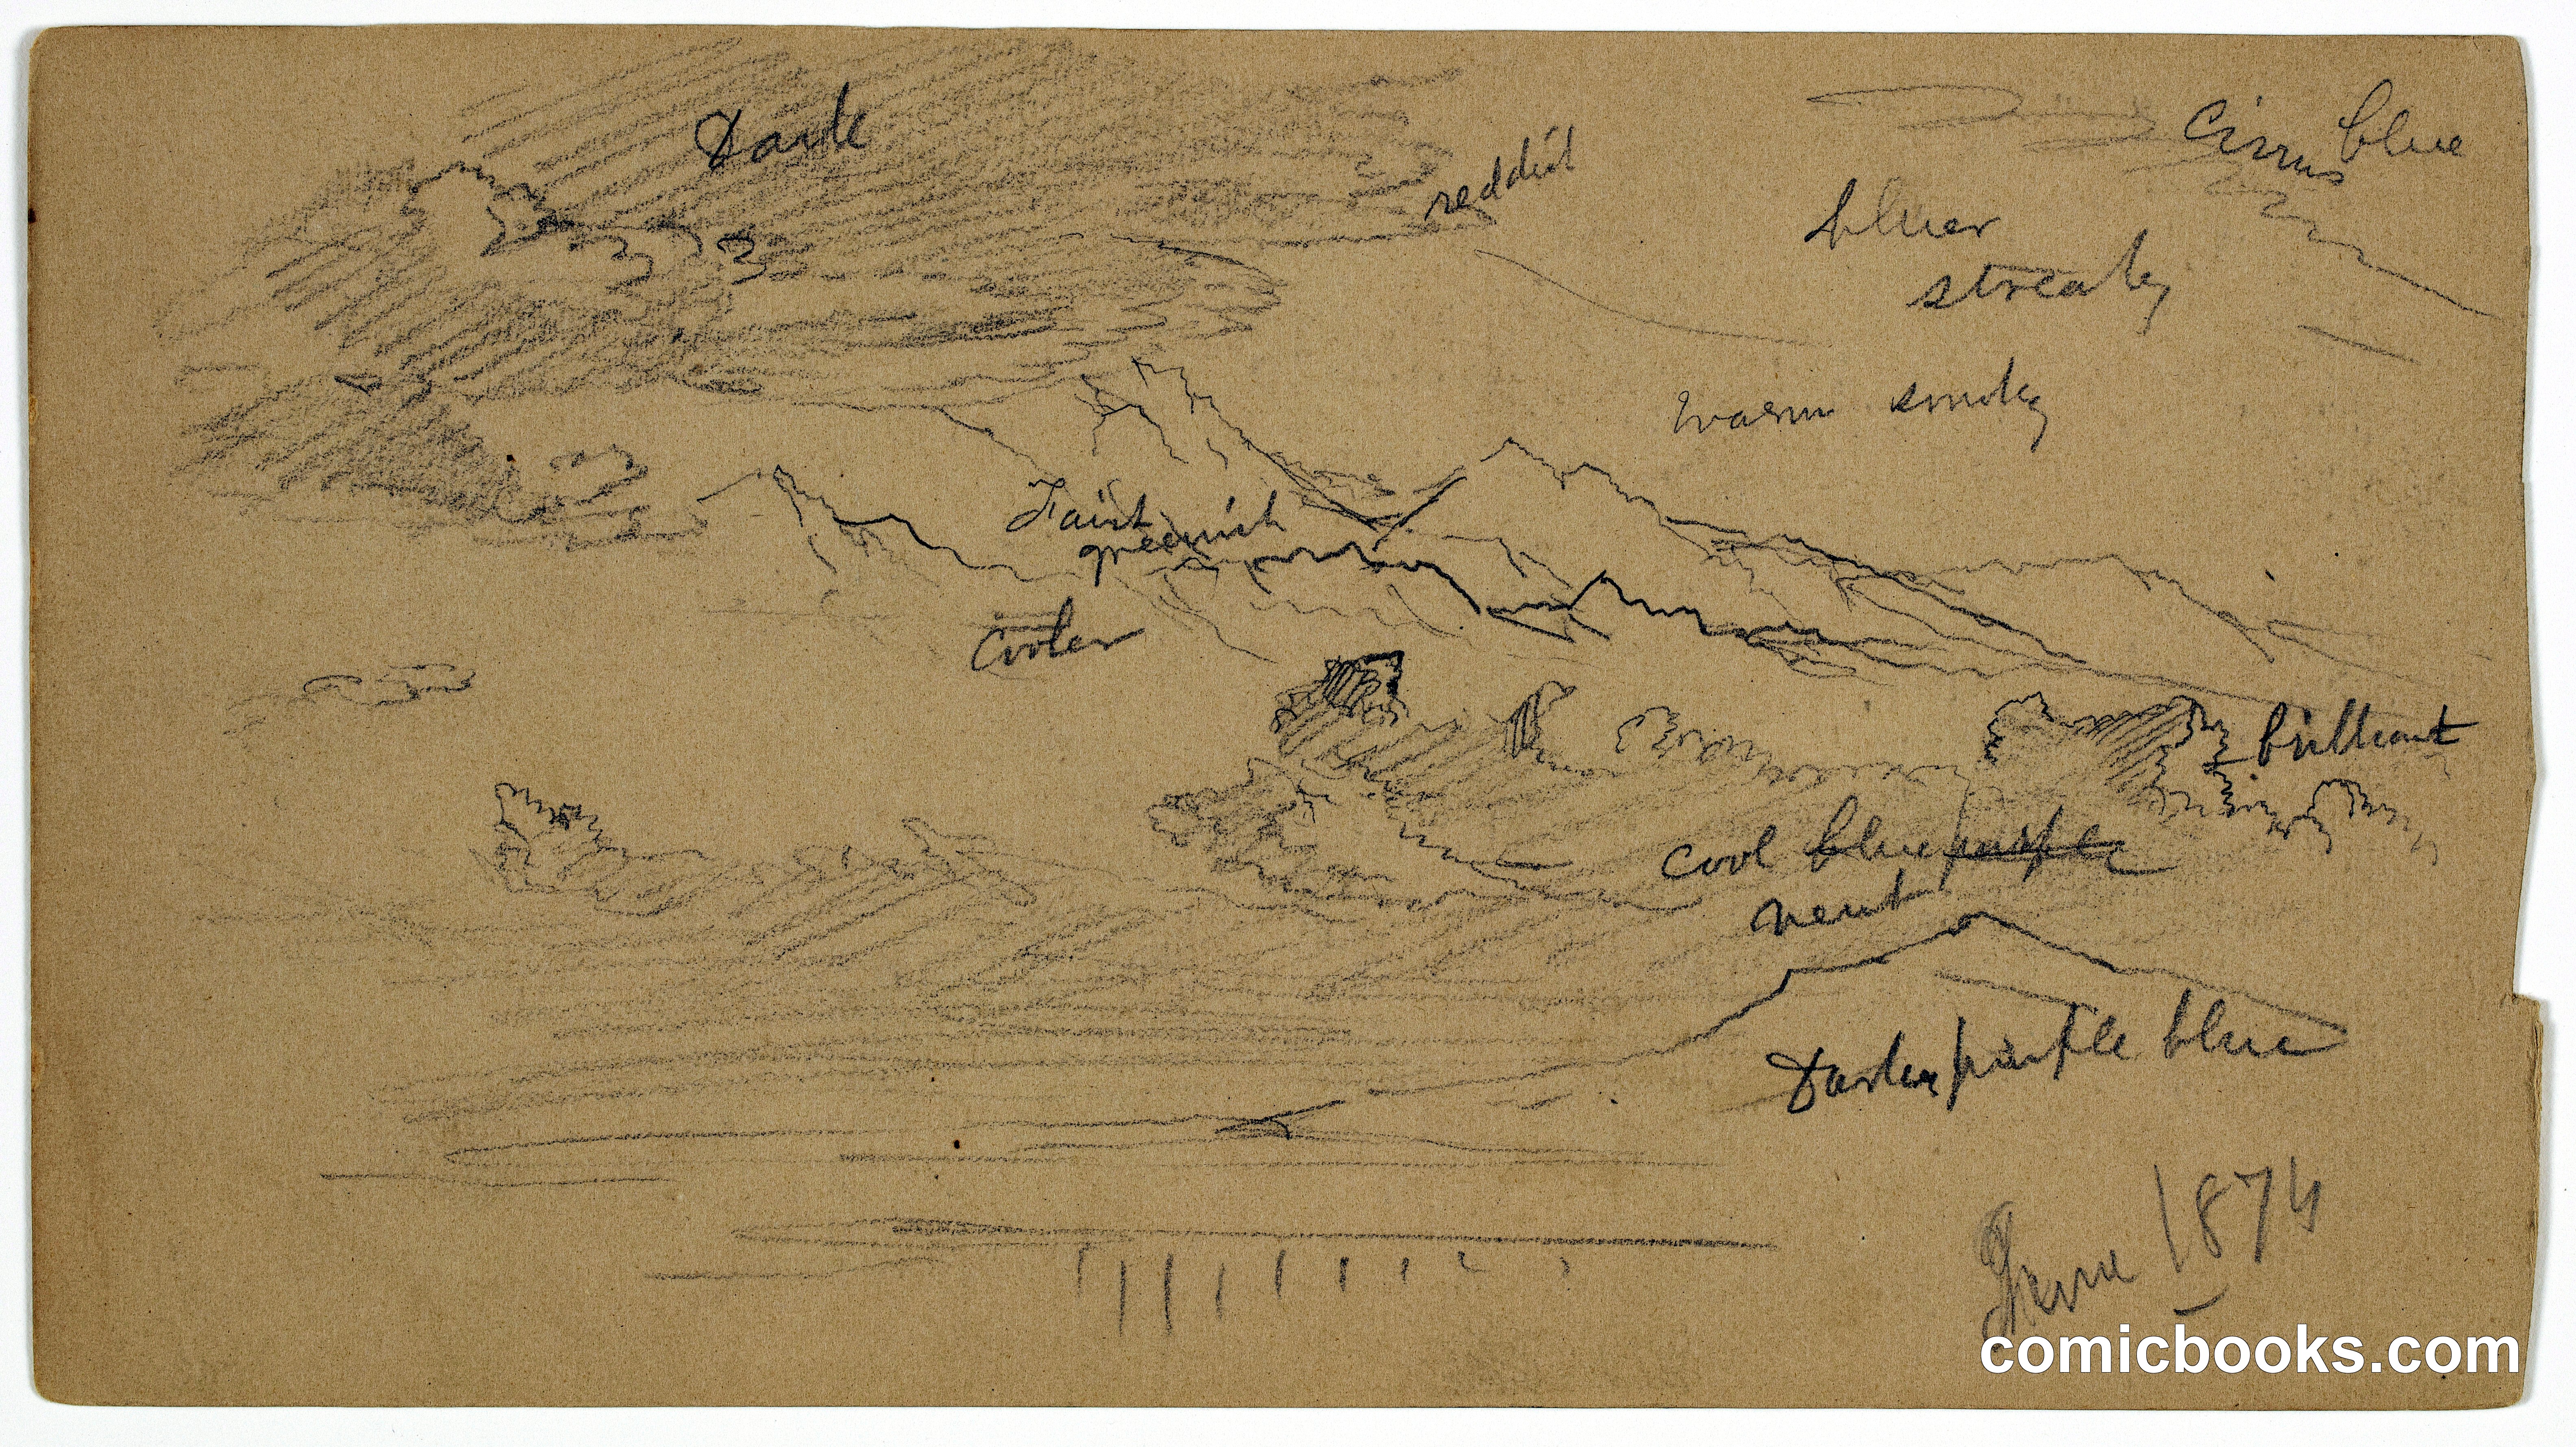 Dark
reddish
Cirrus blue
bluer
streaky
warm smoky
Faint
greenish
Cooler
brilliant
cool blue purple
neut
Darker purple blue
June 1874
comicbooks.com